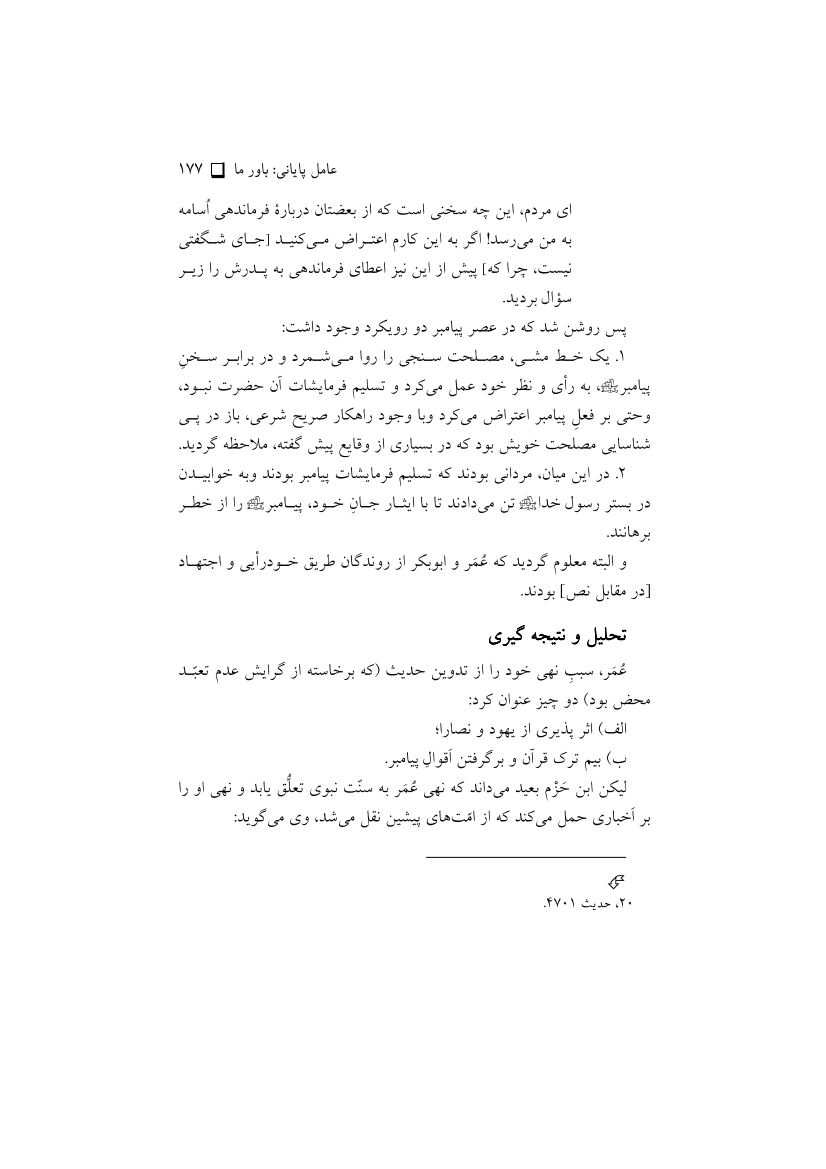 عامل پایانی: باور ما ❑ ۱۷۷
ای مردم، این چه سخنی است که از بعضتان دربارهٔ فرماندهی اُسامه
به من می‌رسد! اگر به این کارم اعتراض می‌کنید [جای شگفتی
نیست، چرا که] پیش از این نیز اعطای فرماندهی به پدرش را زیر
سؤال بردید.
پس روشن شد که در عصر پیامبر دو رویکرد وجود داشت:
۱. یک خط مشی، مصلحت سنجی را روا می‌شمرد و در برابر سخنِ
پیامبرﷺ، به رأی و نظر خود عمل می‌کرد و تسلیم فرمایشات آن حضرت نبود،
وحتی بر فعلِ پیامبر اعتراض می‌کرد وبا وجود راهکار صریح شرعی، باز در پی
شناسایی مصلحت خویش بود که در بسیاری از وقایع پیش گفته، ملاحظه گردید.
۲. در این میان، مردانی بودند که تسلیم فرمایشات پیامبر بودند وبه خوابیدن
در بستر رسول خداﷺ تن می‌دادند تا با ایثار جانِ خود، پیامبرﷺ را از خطر
برهانند.
و البته معلوم گردید که عُمَر و ابوبکر از روندگان طریق خودرأیی و اجتهاد
[در مقابل نص] بودند.
تحلیل و نتیجه گیری
عُمَر، سببِ نهی خود را از تدوین حدیث (که برخاسته از گرایش عدم تعبّد
محض بود) دو چیز عنوان کرد:
الف) اثر پذیری از یهود و نصارا؛
ب) بیم ترک قرآن و برگرفتن اَقوالِ پیامبر.
لیکن ابن حَزْم بعید می‌داند که نهی عُمَر به سنّت نبوی تعلُّق یابد و نهی او را
بر اَخباری حمل می‌کند که از امّت‌های پیشین نقل می‌شد، وی می‌گوید:
۲۰، حدیث ۴۷۰۱.